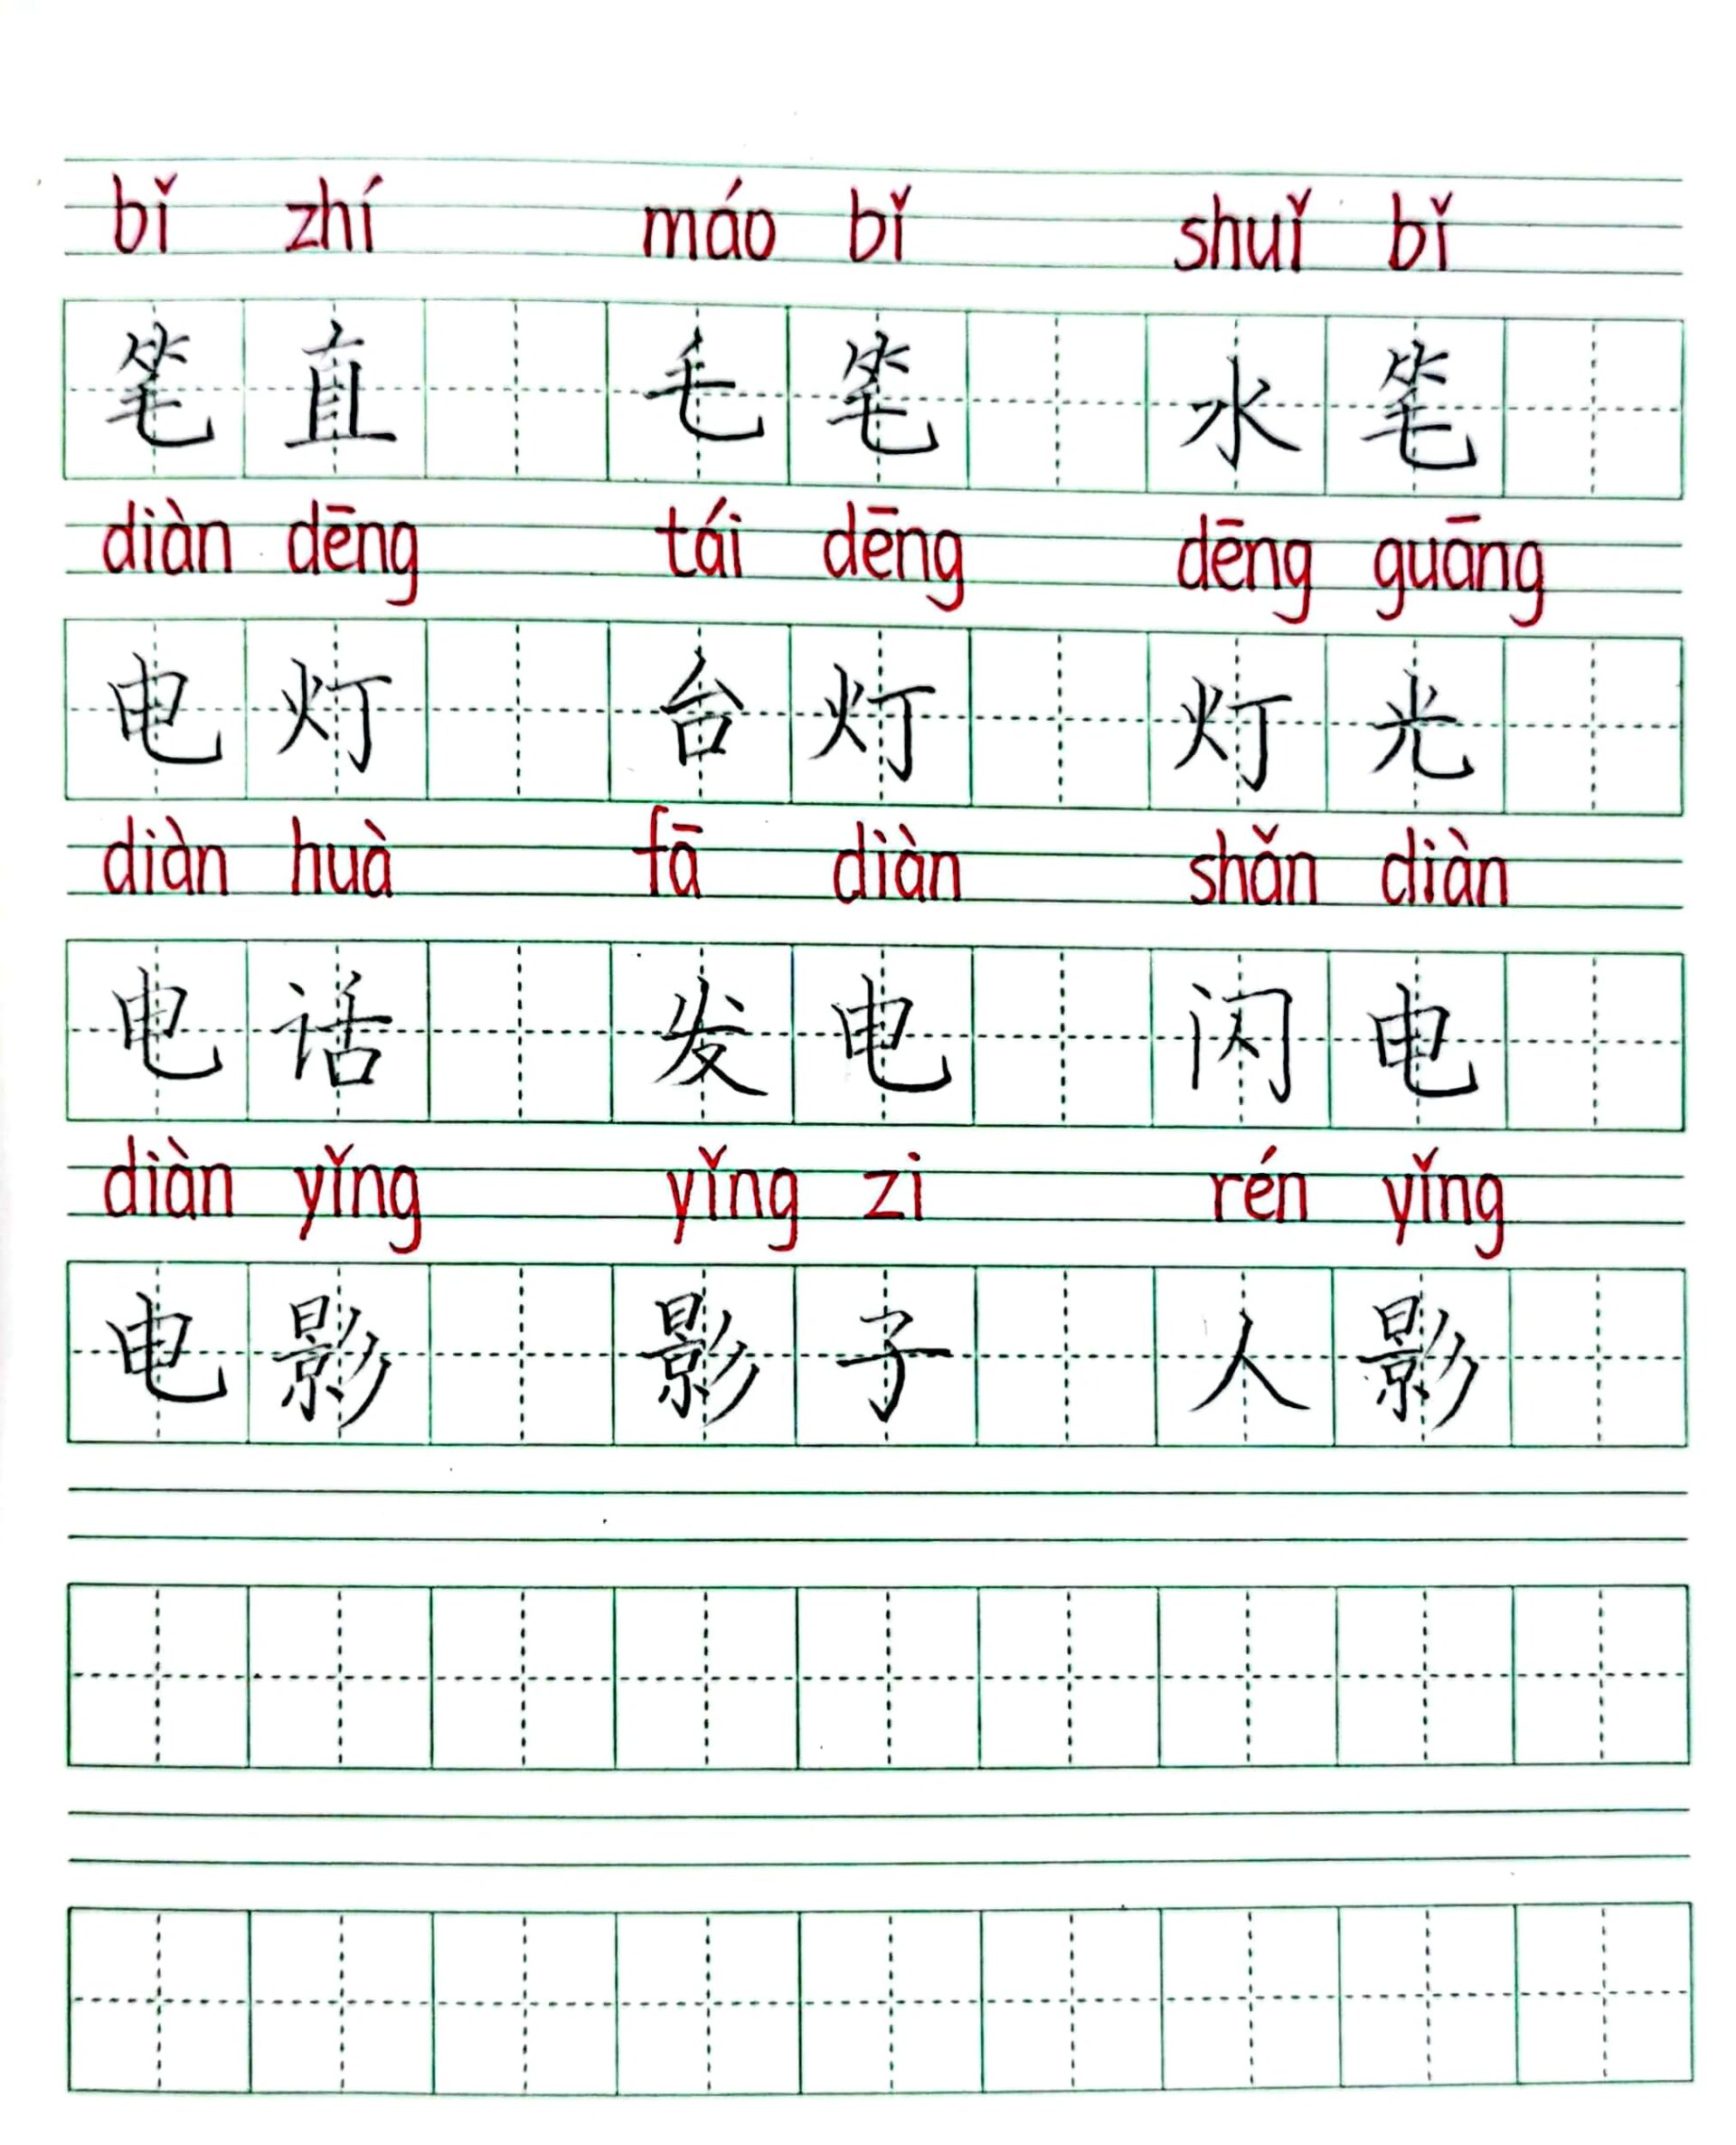 bǐ zhí máo bǐ shuǐ bǐ
笔直 毛笔 水笔
diàn dēng tái dēng dēng guāng
电灯 台灯 灯光
diàn huà fā diàn shǎn diàn
电话 发电 闪电
diàn yǐng yǐng zi rén yǐng
电影 影子 人影